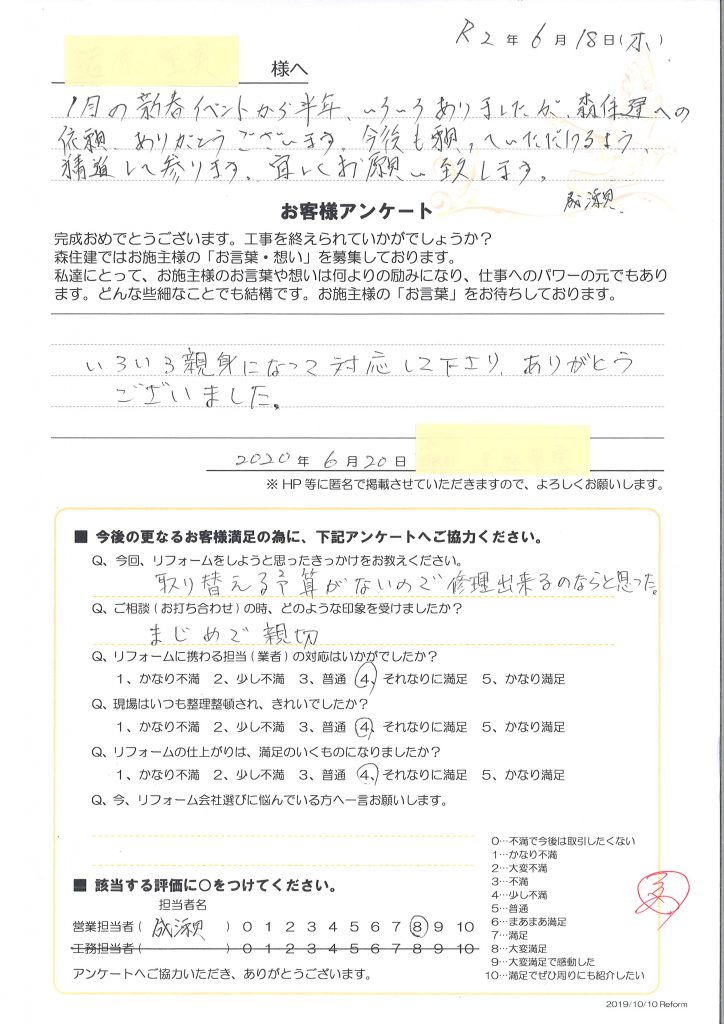 R2年6月18日(木)
様へ
1月の新春イベントから半年、いろいろありましたが、森住建への
依頼、ありがとうございます。今後も頼っていただけるよう、
精進して参ります。宜しくお願い致します。
お客様アンケート
完成おめでとうございます。工事を終えられていかがでしょうか?
森住建ではお施主様の「お言葉・想い」を募集しております。
私達にとって、お施主様のお言葉や想いは何よりの励みになり、仕事へのパワーの元でもあり
ます。どんな些細なことでも結構です。お施主様の「お言葉」をお待ちしております。
いろいろ親身になって対応して下さり、ありがとう
ございました。
2020年6月20日
※HP等に匿名で掲載させていただきますので、よろしくお願いします。
■ 今後の更なるお客様満足の為に、下記アンケートへご協力ください。
Q、今回、リフォームをしようと思ったきっかけをお教えください。
取り替える予算がないので修理出来るのならと思った。
Q、ご相談(お打ち合わせ)の時、どのような印象を受けましたか?
まじめで親切
Q、リフォームに携わる担当(業者)の対応はいかがでしたか?
1、かなり不満 2、少し不満 3、普通 4、それなりに満足 5、かなり満足
Q、現場はいつも整理整頓され、きれいでしたか?
1、かなり不満 2、少し不満 3、普通 4、それなりに満足 5、かなり満足
Q、リフォームの仕上がりは、満足のいくものになりましたか?
1、かなり不満 2、少し不満 3、普通 4、それなりに満足 5、かなり満足
Q、今、リフォーム会社選びに悩んでいる方へ一言お願いします。
0…不満で今後は取引したくない
1…かなり不満
2…大変不満
3…不満
4…少し不満
5…普通
6…まあまあ満足
7…満足
8…大変満足
9…大変満足で感動した
10…満足でぜひ周りにも紹介したい
■ 該当する評価に○をつけてください。
担当者名
営業担当者( ) 0 1 2 3 4 5 6 7 8 9 10
工務担当者( ) 0 1 2 3 4 5 6 7 8 9 10
アンケートへご協力いただき、ありがとうございます。
2019/10/10 Reform